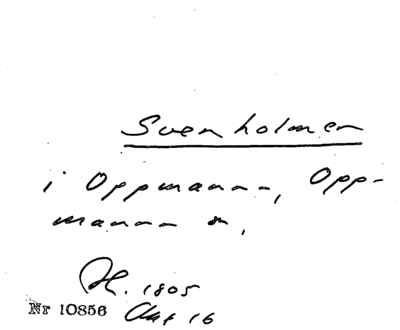 Svenholmen
i Oppmanna, Opp-
manna sn,
H. 1805
Nr 10856 Akt 16